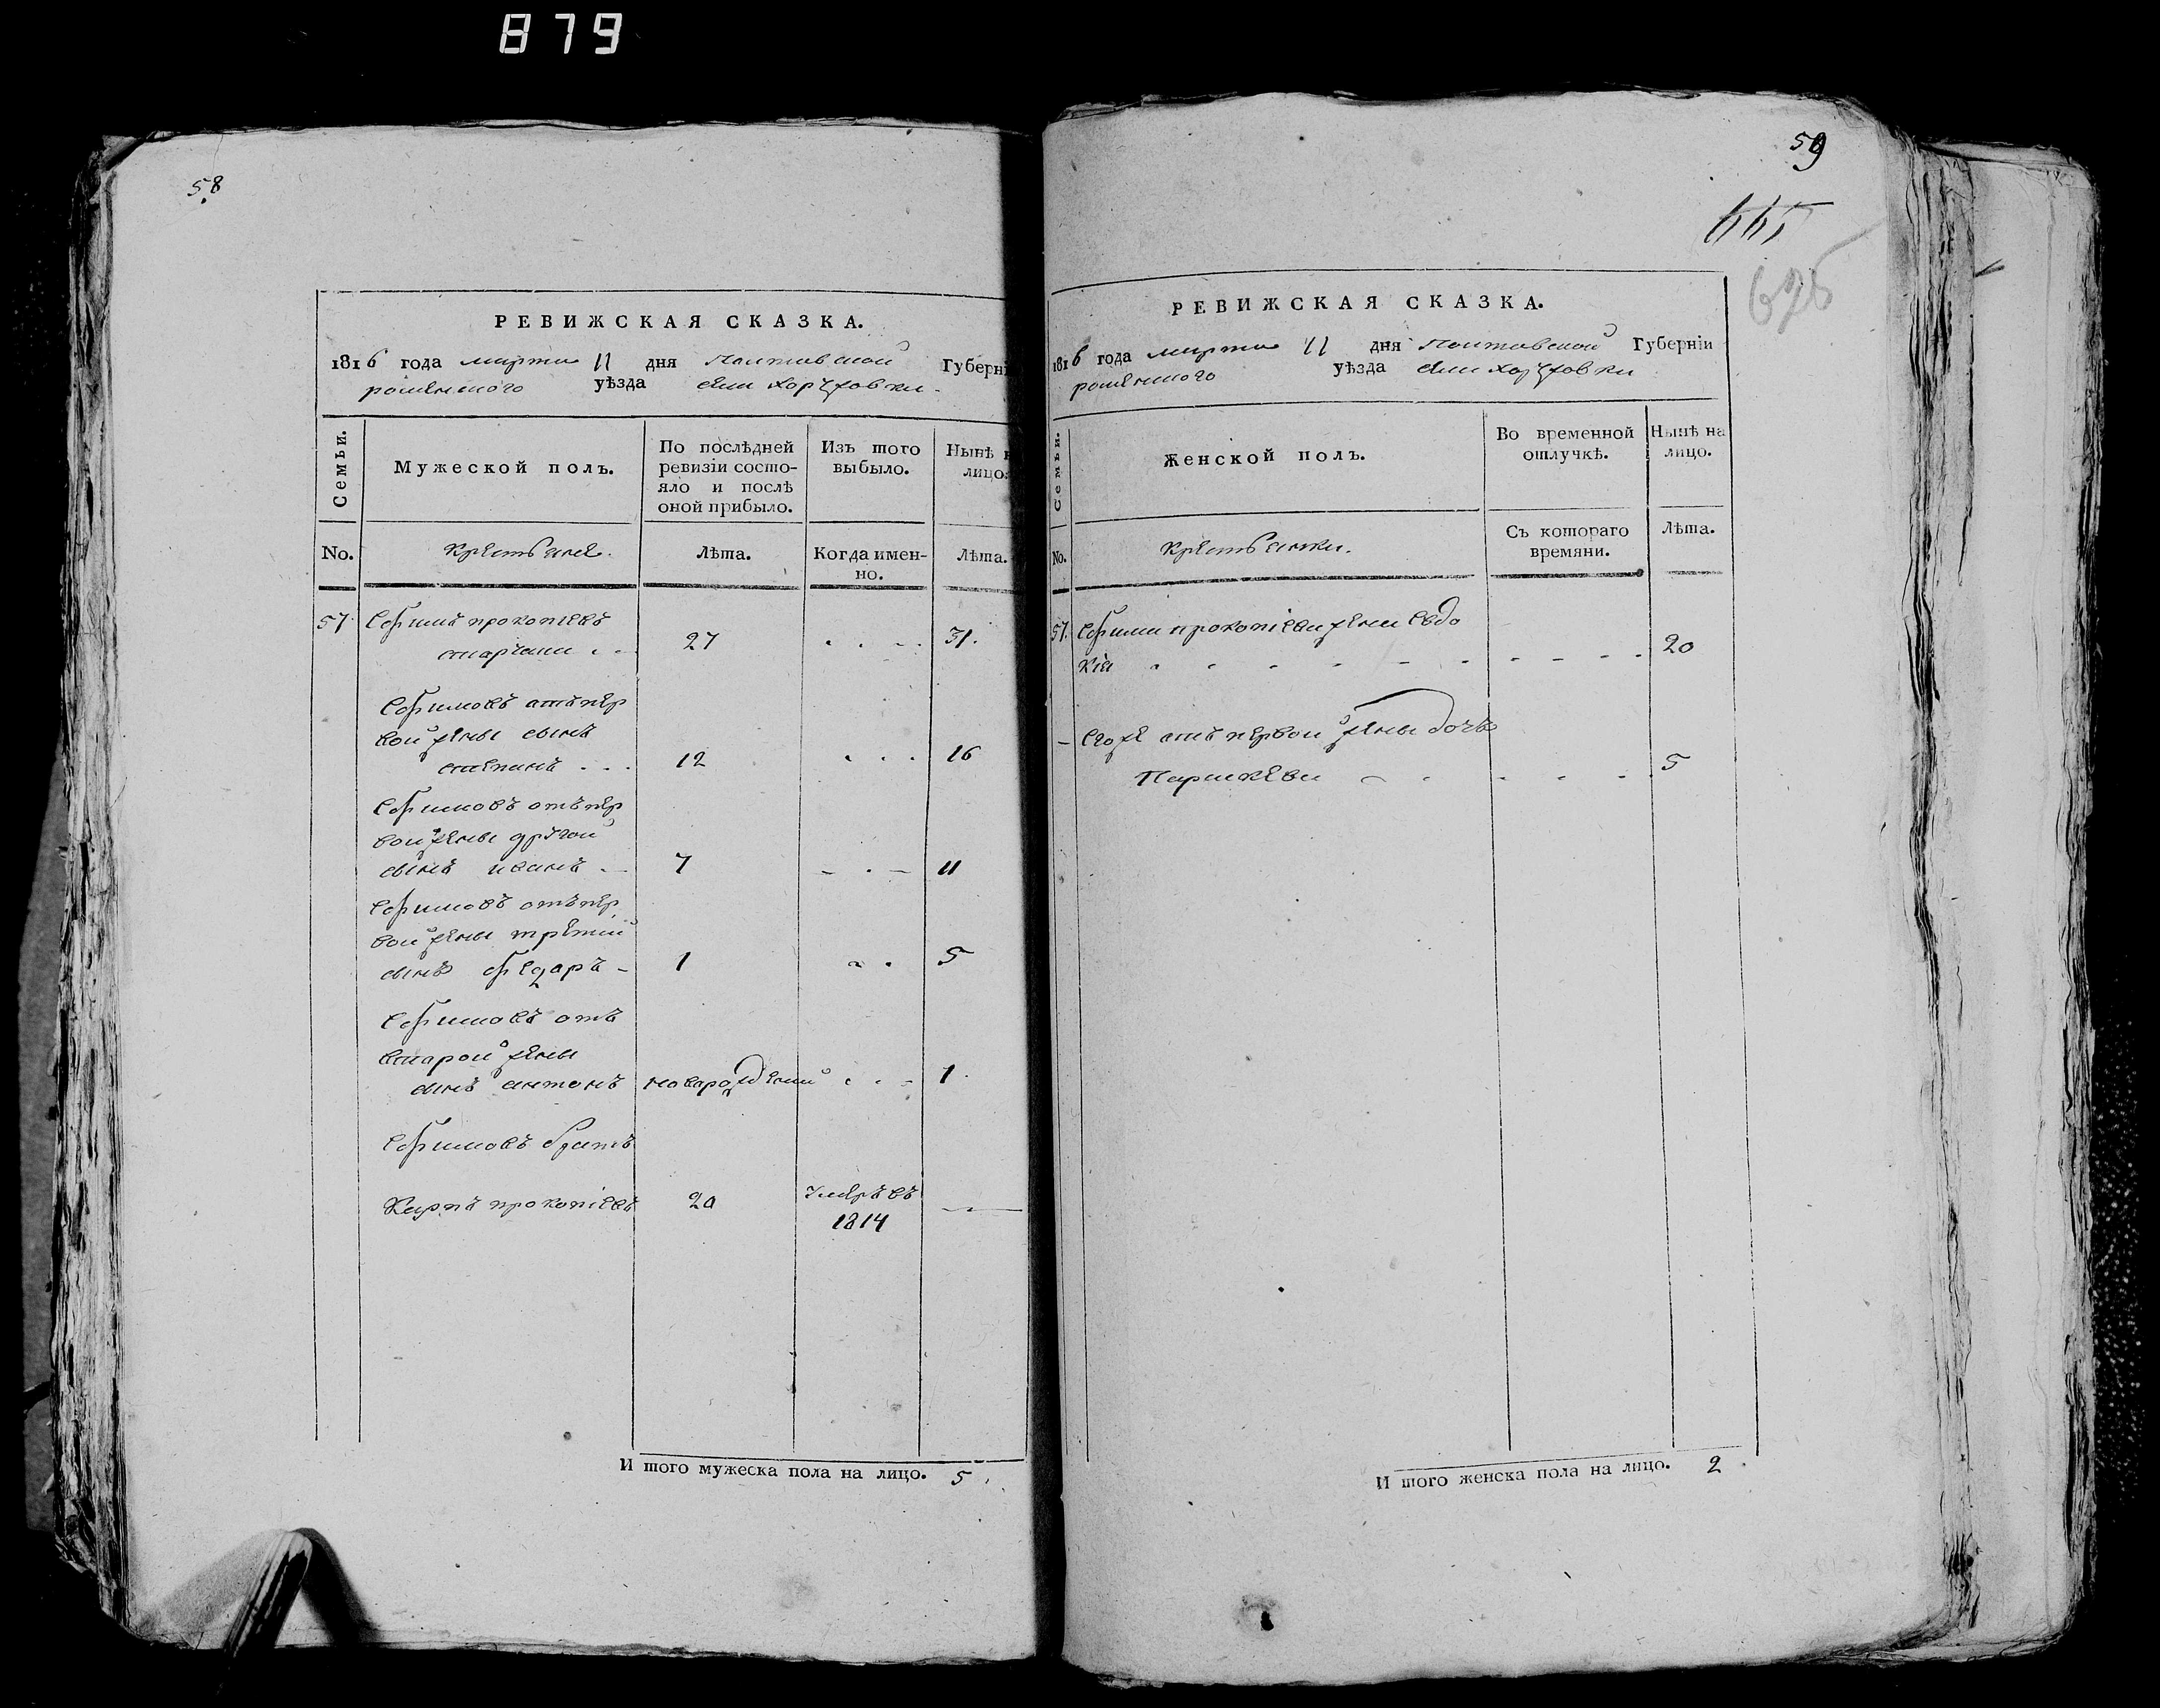 879
58
РЕВИЖСКАЯ СКАЗКА.
1816 года марта 11 дня Полтавской Губерні
роменского уѣзда села Хоружовки
Семьи.
Мужеской полъ.
По послѣдней ревизіи состо-
яло и послѣ
оной прибыло.
Изъ того
выбыло.
Нынѣ н
лицо.
No.
Крестьяне.
Лѣта.
Когда имен-
но.
Лѣта.
57 Ефимъ прокопіевъ
27 31.
Ефимовъ отъ пер
вой жены сынъ
степанъ 12 16
Ефимовъ отъ пер
вой жены другой
сынъ иванъ 7 11
Ефимовъ отъ пер
вой жены третій
сынъ федоръ 1 5
Ефимовъ отъ
второй жены
сынъ антонъ новорожденый 1
Ефимовъ братъ
Карпъ прокопіевъ 20 умеръ въ
1814
И того мужеска пола на лицо. 5
59
РЕВИЖСКАЯ СКАЗКА.
1816 года марта 11 дня Полтавской Губерніи
роменского уѣзда села Хоружовки
Семьи.
Женской полъ.
Во временной
отлучкѣ.
Нынѣ на
лицо.
No.
Крестьянки.
Съ котораго
времяни.
Лѣта.
57. Ефима прокопіева жена Евдо
кія 20
Егоже отъ первой жены дочь
Параскева 5
И того женска пола на лицо. 2